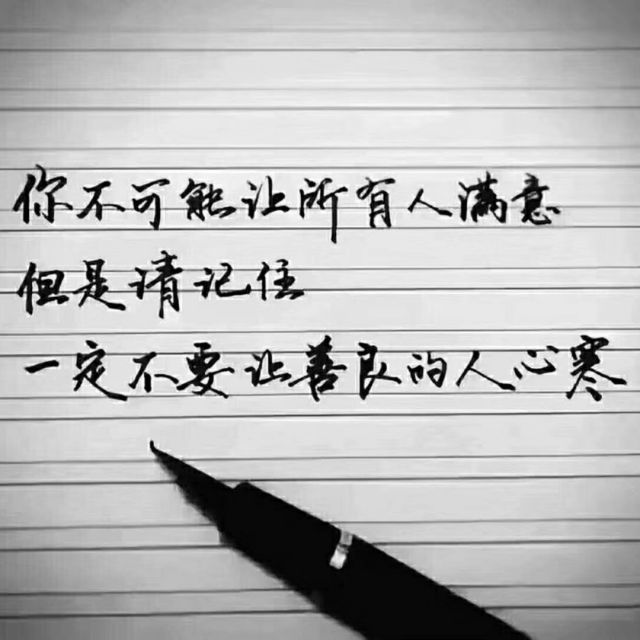 你不可能让所有人满意
但是请记住
一定不要让善良的人心寒